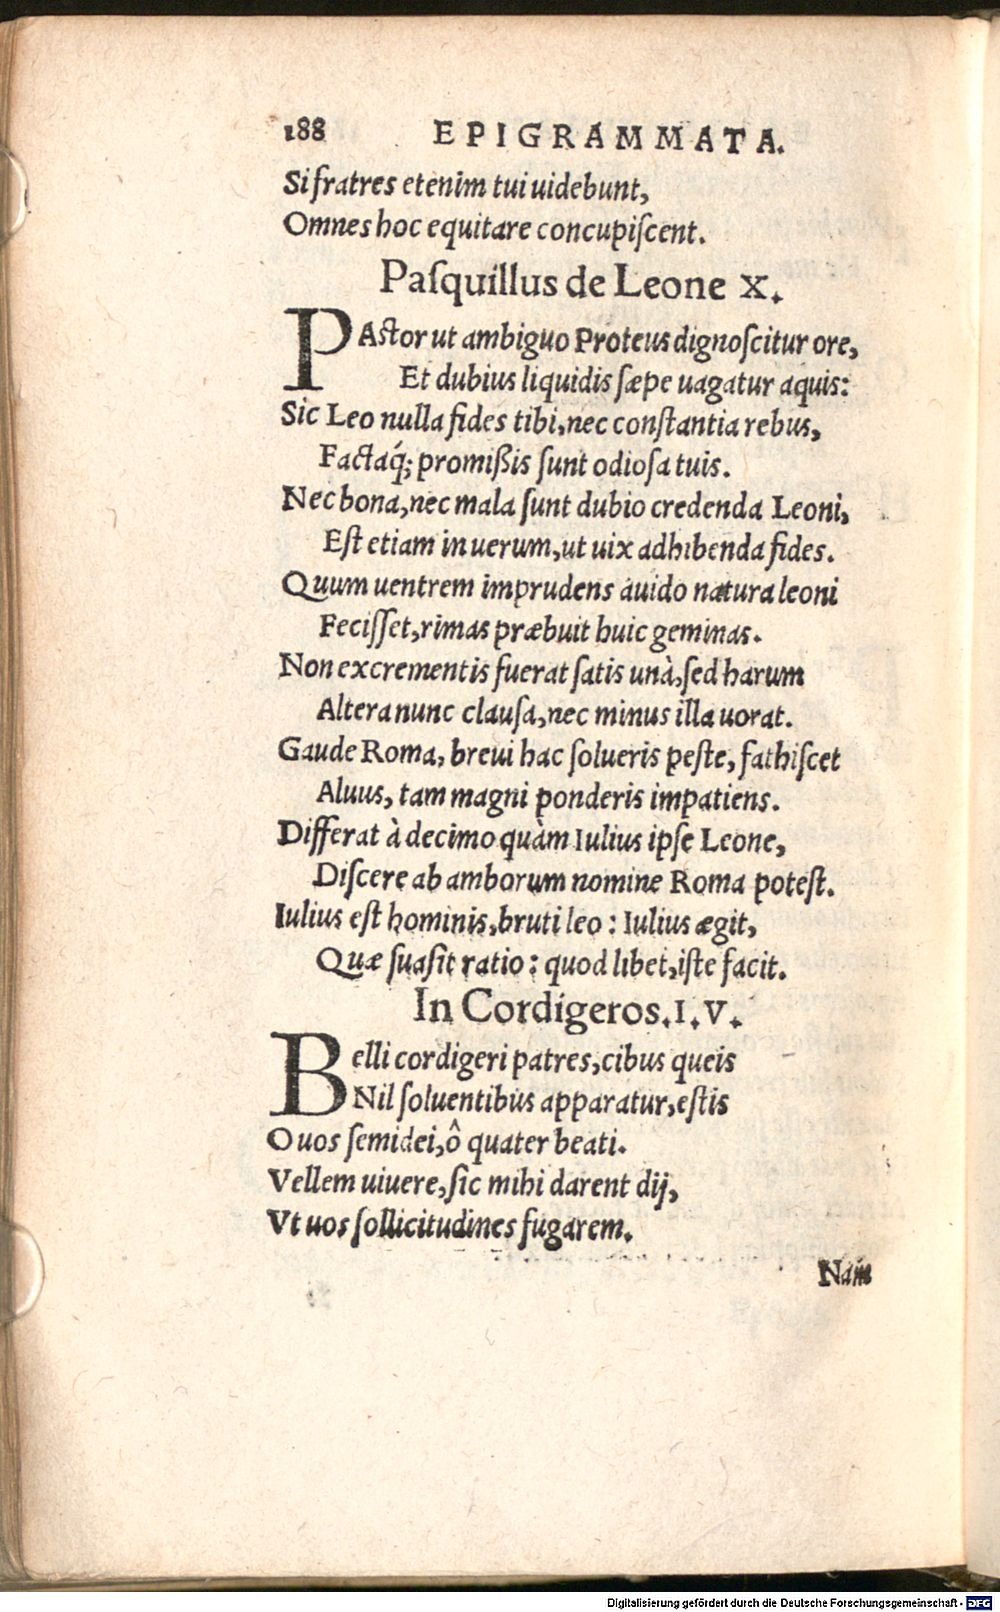 188 EPIGRAMMATA.
Si fratres etenim tui uidebunt,
Omnes hoc equitare concupiſcent.
Paſquillus de Leone X.
PAstor ut ambiguo Proteus dignoſcitur ore,
Et dubius liquidis ſæpe uagatur aquis:
Sic Leo nulla fides tibi, nec conſtantia rebus,
Factaq́; promißis ſunt odioſa tuis.
Nec bona, nec mala ſunt dubio credenda Leoni,
Eſt etiam in uerum, ut uix adhibenda fides.
Quum uentrem imprudens auido natura leoni
Feciſſet, rimas præbuit huic geminas.
Non excrementis fuerat ſatis unà, ſed harum
Altera nunc clauſa, nec minus illa uorat.
Gaude Roma, breui hac ſolueris peſte, fathiſcet
Aluus, tam magni ponderis impatiens.
Differat à decimo quàm Iulius ipſe Leone,
Diſcere ab amborum nomine Roma poteſt.
Iulius eſt hominis, bruti leo: Iulius ægit,
Quæ ſuaſit ratio: quod libet, iſte facit.
In Cordigeros. I. V.
Belli cordigeri patres, cibus queis
Nil ſoluentibus apparatur, eſtis
O uos ſemidei, ô quater beati.
Vellem uiuere, ſic mihi darent dij,
Vt uos ſollicitudines fugarem.
Nam
Digitalisierung gefördert durch die Deutsche Forschungsgemeinschaft - DFG